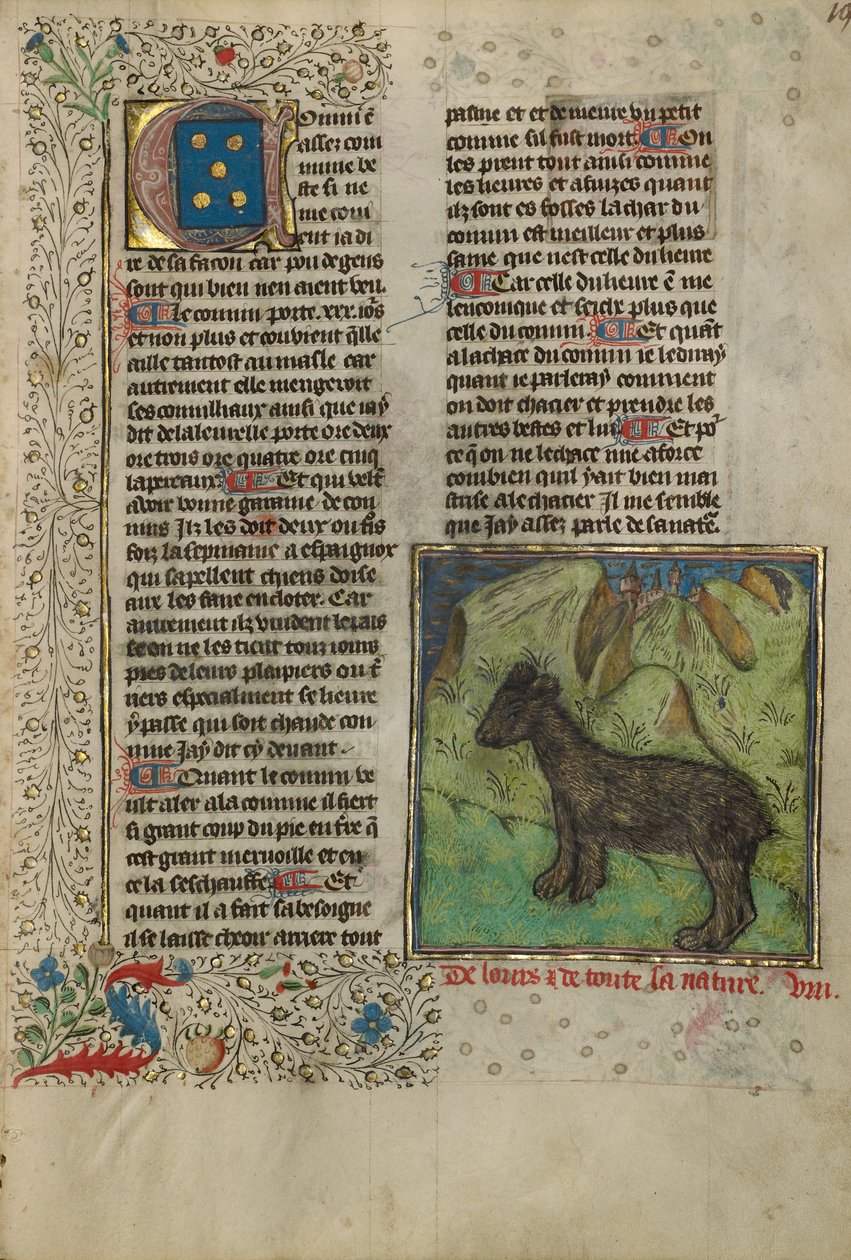 19
Onnin ē
assez com
mune be
ste si ne
me conv
ient ia di
re de sa facon car pou de gens
sont qui bien nen aient veu.
Le connin porte .xxx. iōrs
et non plus et couvient q̄lle
aille tantost au masle car
autrement elle mengeroit
ses connilliaux ainsi que iay
dit de la leurelle porte ore deux
ore trois ore quatre ore cinq
lapereaux. Et qui velt
avoir bonne garanne de con
nins Ilz les doit deux ou trois
foiz la sepmaine a espaignox
qui sapellent chiens doise
aux les faire encloter. Car
autrement ilz vuident le pais
se on ne les tient touz iours
pres de leurs plaipiers ou t̄
niers especialment se lieure
y passe qui soit chaude con
mme Jay dit cy devant.
Quant le connin ve
ult aler a la connine il fiert
si grant coup du pie en t̄re q̄
cest grant mervoille et en
ce la seschauffe. Et
quant il a fait sa besoigne
il se laisse cheoir arriere tout
pasme et et demeure vn petit
comme sil fust mort. On
les prent tout ainsi comme
les lieures et a fuizes quant
ilz sont es fosses la char du
connin est meilleur et plus
saine que nest celle du lieure
Car celle du lieure ē me
lenconique et seiche plus que
celle du connin. Et quāt
a la chace du connin ie le diray
quant ie parleray comment
on doit chacier et prendre les
autres bestes et lui. Et po᷑
ce q̄ on ne le chace mie a force
combien quil y ait bien mai
strise a le chacier Il me semble
que Jay assez parle de sa nat᷑e.
De lours & de toute sa nature. viii.